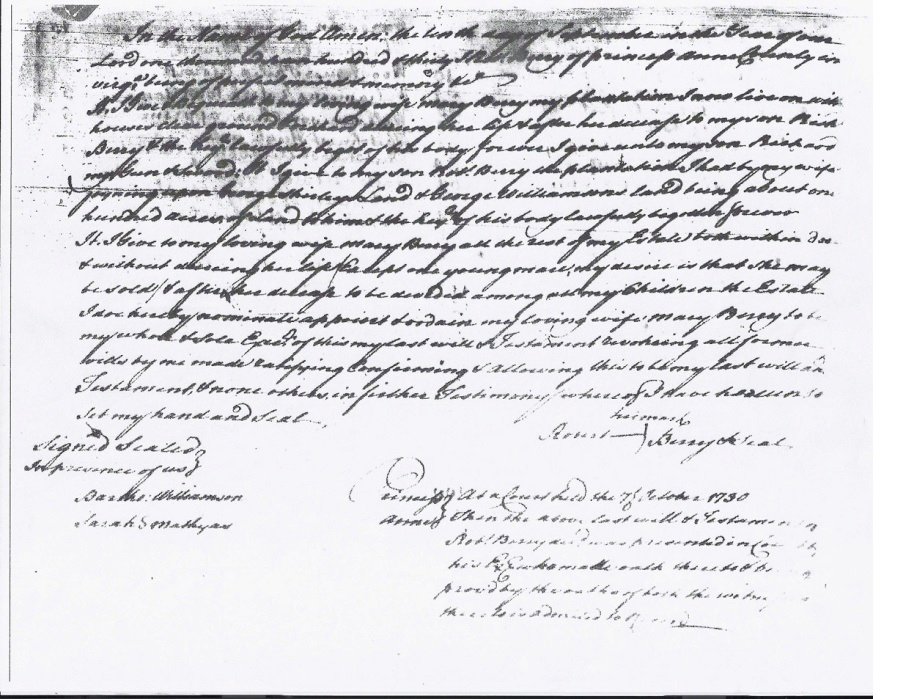 In the Name of God Amen: the tenth day of September in the Year of our
Lord one thousand seven hundred & thirty I Robt Berry of princess anne County in
virga being of perfect sense & memory &c
It. I Give & bequeath to my loving wife Mary Berry my plantation I now live on with
houses during her life & after her decease to my son Rich
Berry & the heirs lawfully begot of his body for ever I give unto my son Richard
my Gun & sword; It I give to my son Robt. Berry the plantation I had by my wife
joyning upon Land & George Williamsons land being about one
hundred acres of land to him & the heirs of his body lawfully begotten for ever
It. I Give to my loving wife Mary Berry all the rest of my Estate both within
& without during her life (Except one young mare, my desire is that she may
be sold) & after her decease to be devided among all my Children the Estate
I do hereby nominate appoint & ordain my loving wife Mary Berry to be
my whole & sole Exec. of this my last will & Testament revokeing all former
wills by me made ratifying Confirming & allowing this to be my last will an
Testament, & none others, in further Testimony whereof I have hereunto
set my hand and Seal
his mark
Robert Berry & Seal
Signed Sealed
In presence of us
Bartho: Williamson
Sarah S Mathyas
Princess Anne At a Court held the 7 October 1730
Then the above last will & Testament
Robt Berry decd was presented in
his who made oath thereto & be
proved by the oaths of both the witnesses
thereto is admitted to Record